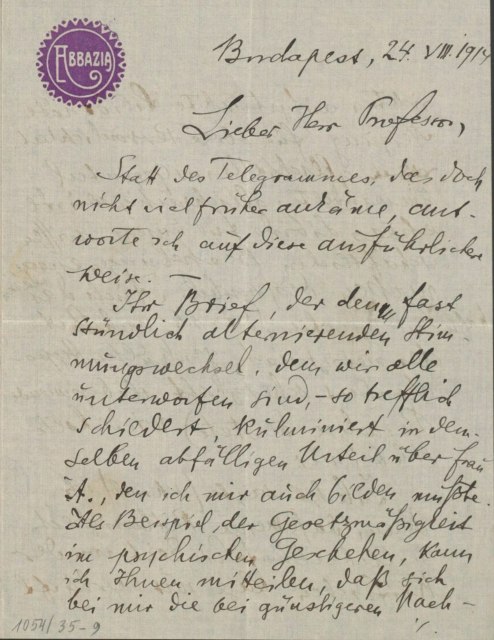 ABBAZIA
Budapest, 24. VIII. 1914
Lieber Herr Professor,
Statt des Telegrammes, das doch
nicht viel früher ankäme, ant-
worte ich auf diese ausführlichere
Weise. —
Ihr Brief, der den, fast
stündlich alternierenden Stim-
mungswechsel, dem wir alle
unterworfen sind, – so trefflich
schildert, kulminiert in dem-
selben abfälligen Urteil über Frau
A., den ich mir auch bilden mußte.
Als Beispiel der Gesetzmäßigkeit
im psychischen Geschehen, kann
ich Ihnen mitteilen, daß sich
bei mir die bei günstigeren Nach-
1054/35-9